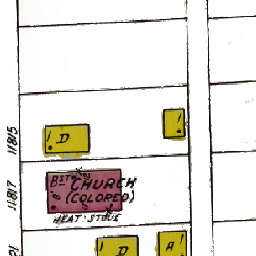 11815
D
1
1
11817
Bst
CHURCH
(COLORED)
HEAT: STOVE
D
A